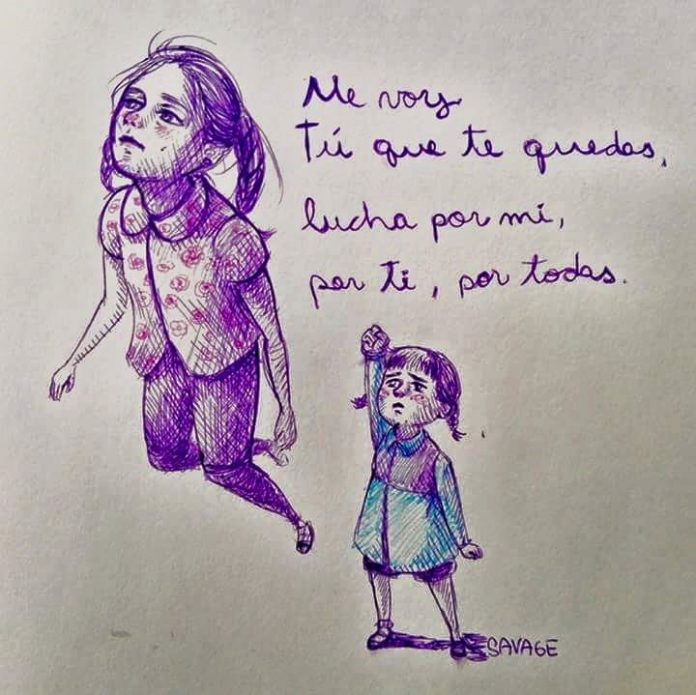 Me voy
Tú que te quedas,
lucha por mí,
por ti, por todas.
SAVAGE